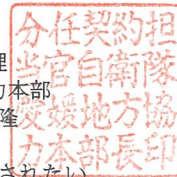 分任契約担
当官自衛隊
愛媛地方協
力本部長印
理
力本部
隆
されたい